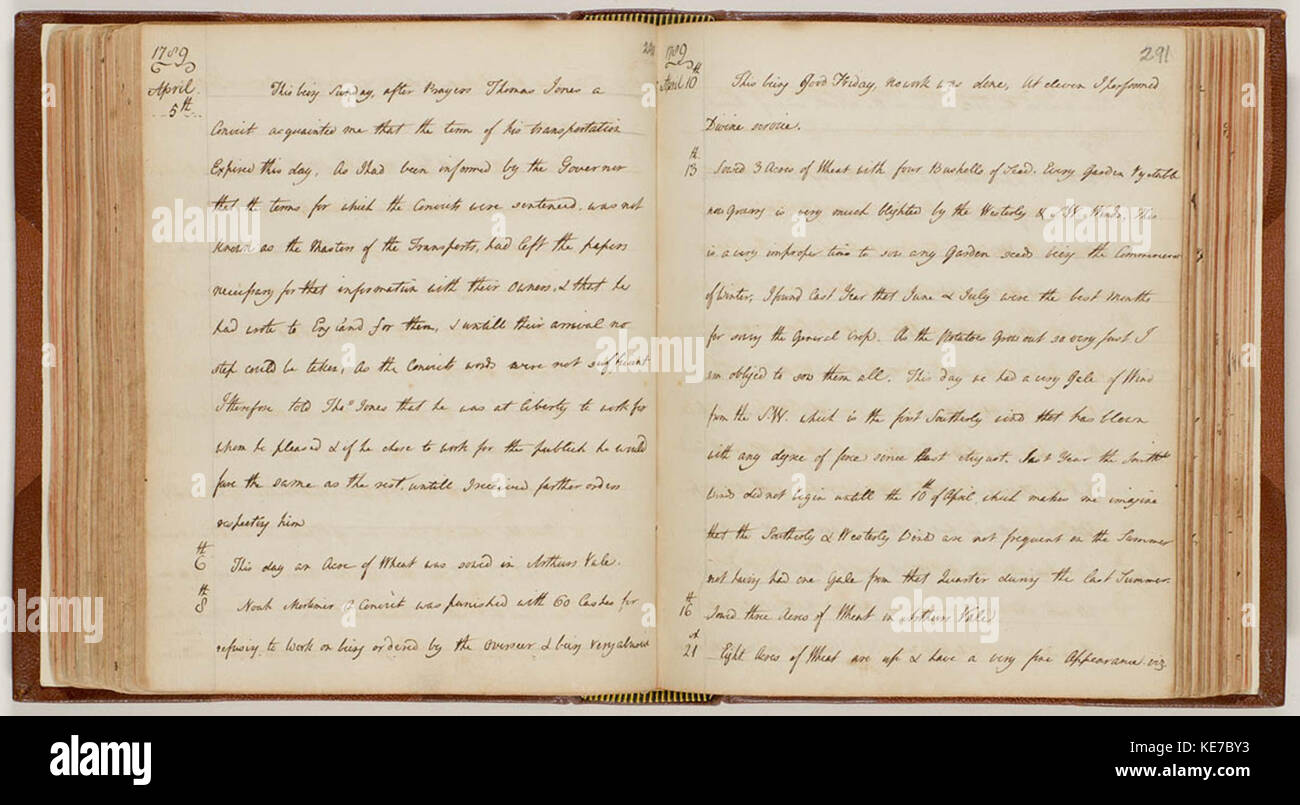 1789
April
5th
This being Sunday, after Prayers Thomas Jones a
Convict acquainted me that the term of his transportation
Expired this day, As I had been informed by the Governor
that the terms for which the Convicts were sentenced. was not
known as the Masters of the Transports, had left the papers
necessary for that information with their owners, & that he
had wrote to England for them, & untill their arrival no
step could be taken, As the Convicts words were not sufficient
I therefore told Thos Jones that he was at liberty to work for
whom he pleased & if he chose to work for the publick he would
fare the same as the rest. untill I received farther orders
respecting him
6th This day an Acre of Wheat was sowed in Arthurs Vale.
8th Noah Mortimer a Convict was punished with 60 Lashes for
refusing to Work on being ordered by the Overseer & being very abusive
1789
291
April 10th This being Good Friday, no work was done, At eleven I performed
Divine service.
13th Sowed 3 Acres of Wheat with four Bushells of Seed. Every Garden Vegetable
now Growing is very much blighted by the Westerly & S.W. Winds, This
is a very improper time to sow any Garden seeds being the
of Winter, I found last Year that June & July were the best months
for sowing the General Crop. As the Potatoes Grow out so very fast I
am obliged to sow them all. This day we had a very Gale of Wind
from the S.W. which is the first Southerly wind that has blown
with any degree of force since last August. Last Year the
Winds did not begin untill the 10th of April which makes me imagine
that the Southerly & Westerly Winds are not frequent in the Summer
not having had one Gale from that Quarter during the last Summer.
16th Sowed three Acres of Wheat in Arthurs Vale.
21st Eight Acres of Wheat are up & have a very fine Appearance viz
a alamy stock photo
alamy
KE7BY3
www.alamy.com